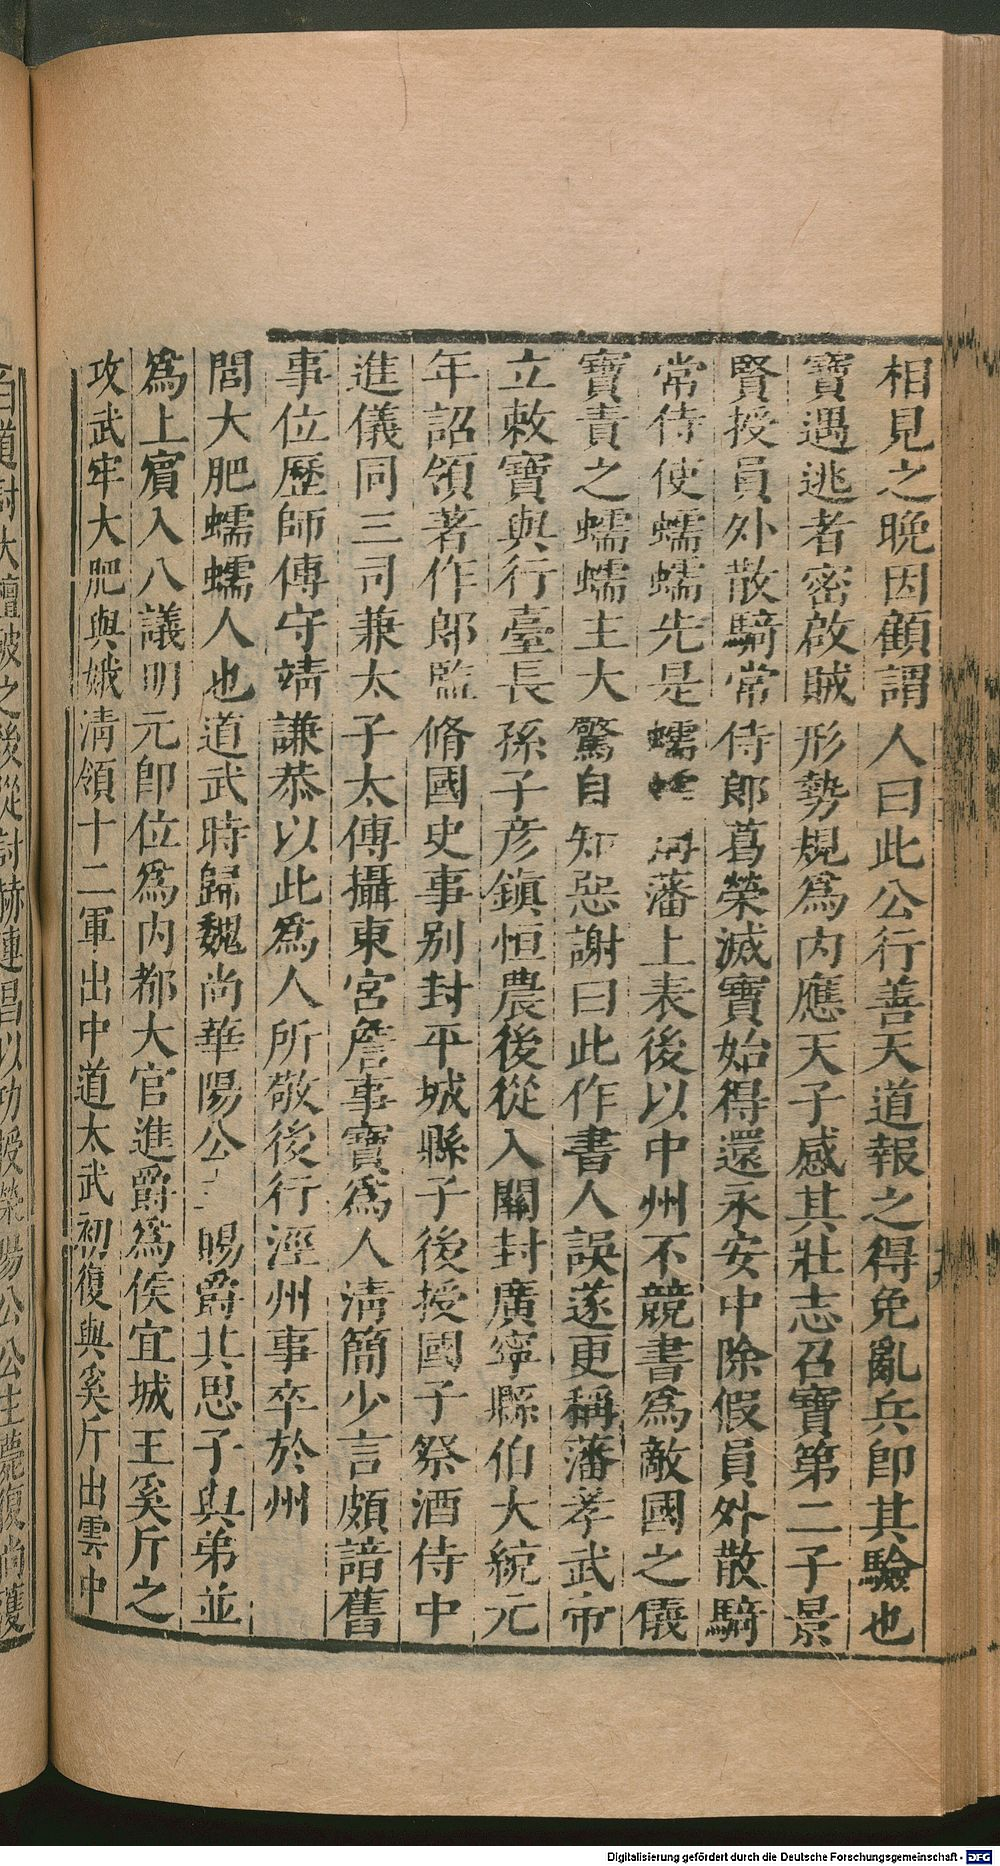 相見之晚因顧謂人曰此公行善天道報之得免亂兵即其驗也
寶遇逃者密啟賊形勢規爲内應天子感其壯志召寶第二子景
賢授員外散騎常侍郎葛榮滅寶始得還永安中除假員外散騎
常侍使蠕蠕先是蠕稱藩上表後以中州不競書爲敵國之儀
寶責之蠕蠕主大驚自知惡謝曰此作書人誤遂更稱藩孝武帝
立敕寶與行臺長孫子彦鎮恒農後從入關封廣寧縣伯大統元
年詔領著作郎監脩國史事别封平城縣子後授國子祭酒侍中
進儀同三司兼太子太傅攝東宮詹事寶爲人清簡少言頗諳舊
事位歷師傅守靖謙恭以此爲人所敬後行涇州事卒於州
閭大肥蠕蠕人也道武時歸魏尚華陽公主賜爵其思子與弟並
爲上賓入八議明元即位爲内都大官進爵爲侯宜城王奚斤之
攻武牢大肥與娥清領十二軍出中道太武初復與奚斤出雲中
白道討大檀破之後從討赫連昌以功授滎陽公公主薨復尚濩
Digitalisierung gefördert durch die Deutsche Forschungsgemeinschaft - DFG